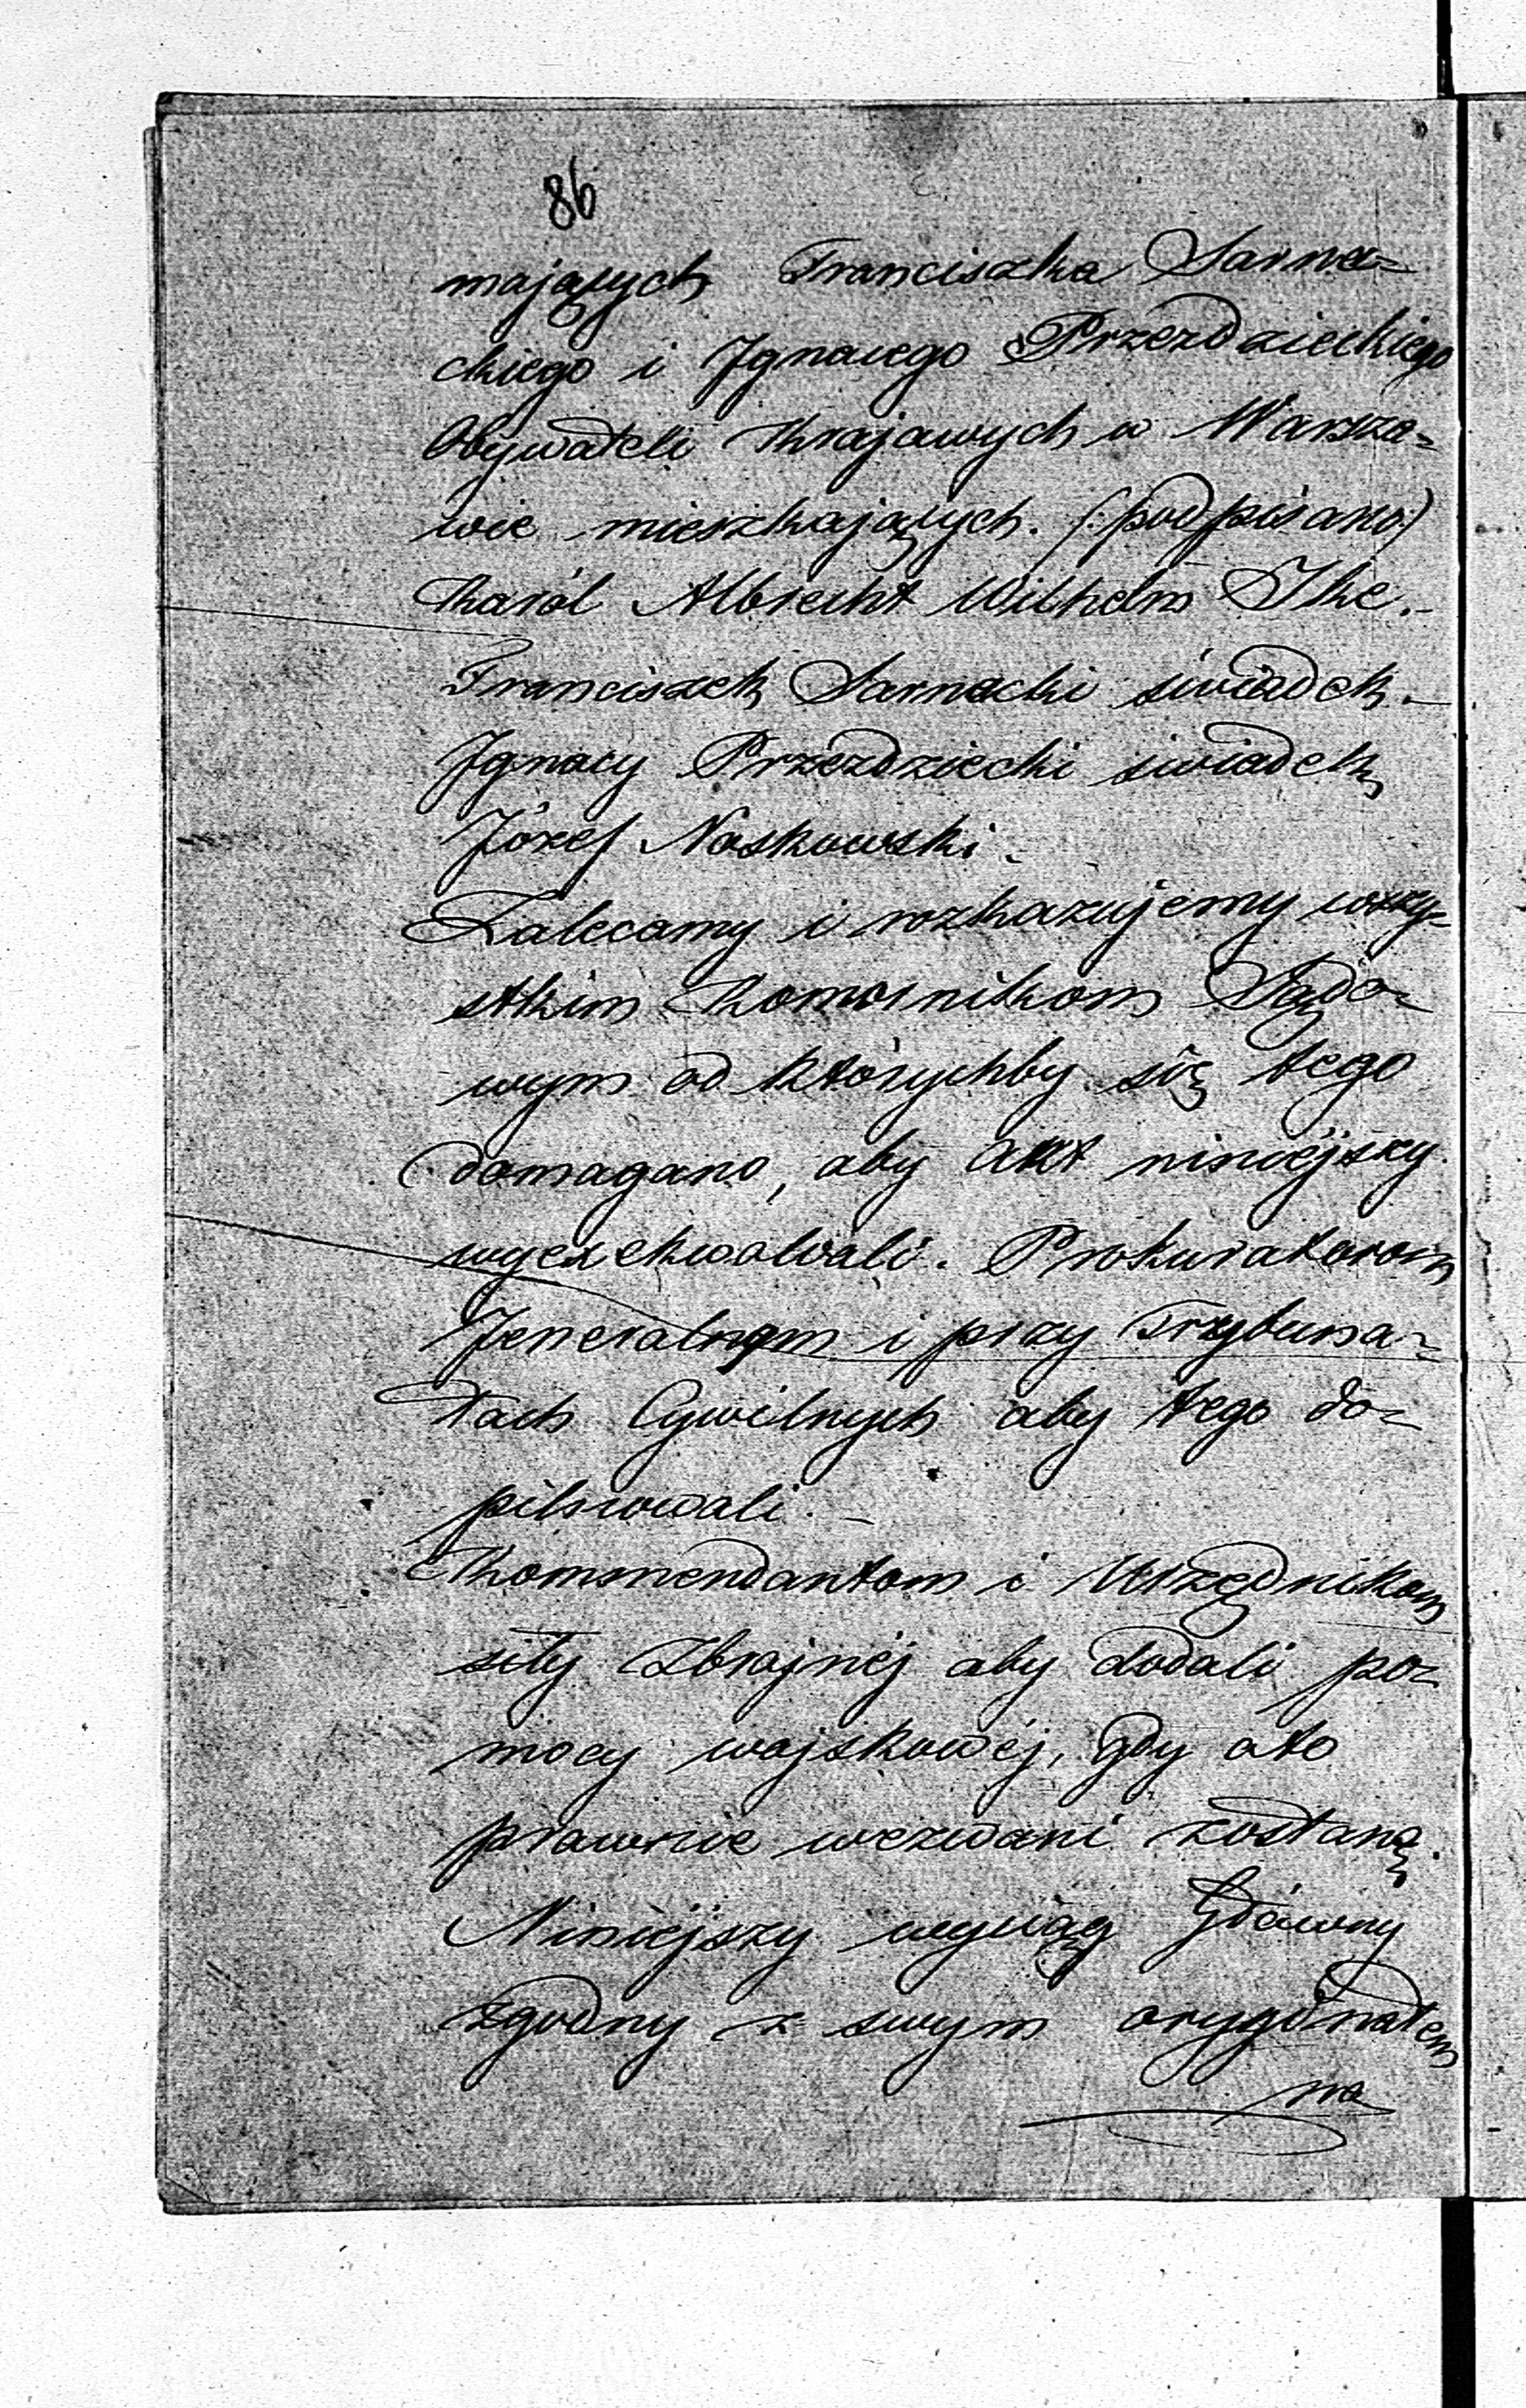 86
mających Franciszka Sarna=
ckiego i Ignacego Przezdzieckiego
Obywateli Krajowych w Warsza=
wie mieszkających. (: podpisano :)
Karól Albrecht Wilhelm Ihe.-
Franciszek Sarnacki świadek.-
Ignacy Przezdziecki świadek
Józef Noskowski.-
Zalecamy i rozkazujemy wszy=
stkim Komornikom Sądo=
wym od którychby się tego
domagano, aby akt niniéjszy
wyexekwowali. Prokuratorom
Jeneralnym i przy Trybuna=
łach Cywilnych aby tego do=
pilnowali.-
Kommendantom i Urzędnikom
siły zbrojnéj aby dodali po=
mocy wojskowéj, gdy oto
prawnie wezwani zostaną.
Niniéjszy wyciąg Główny
zgodny z swym oryginałem
na